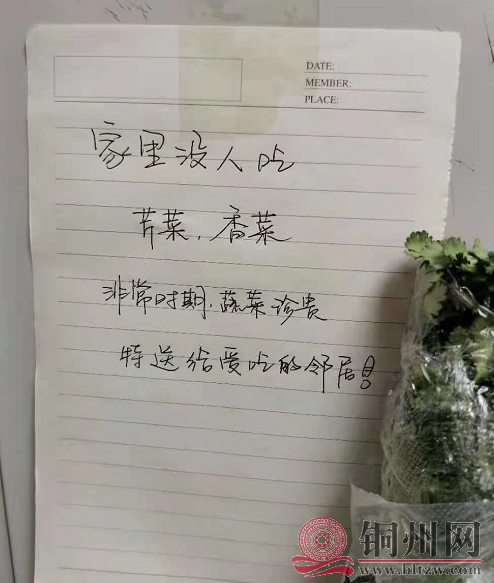 DATE:
MEMBER:
PLACE:
家里没人吃
芹菜,香菜
非常时期,蔬菜珍贵
特送给爱吃的邻居!
铜州网
www.bltzw.com